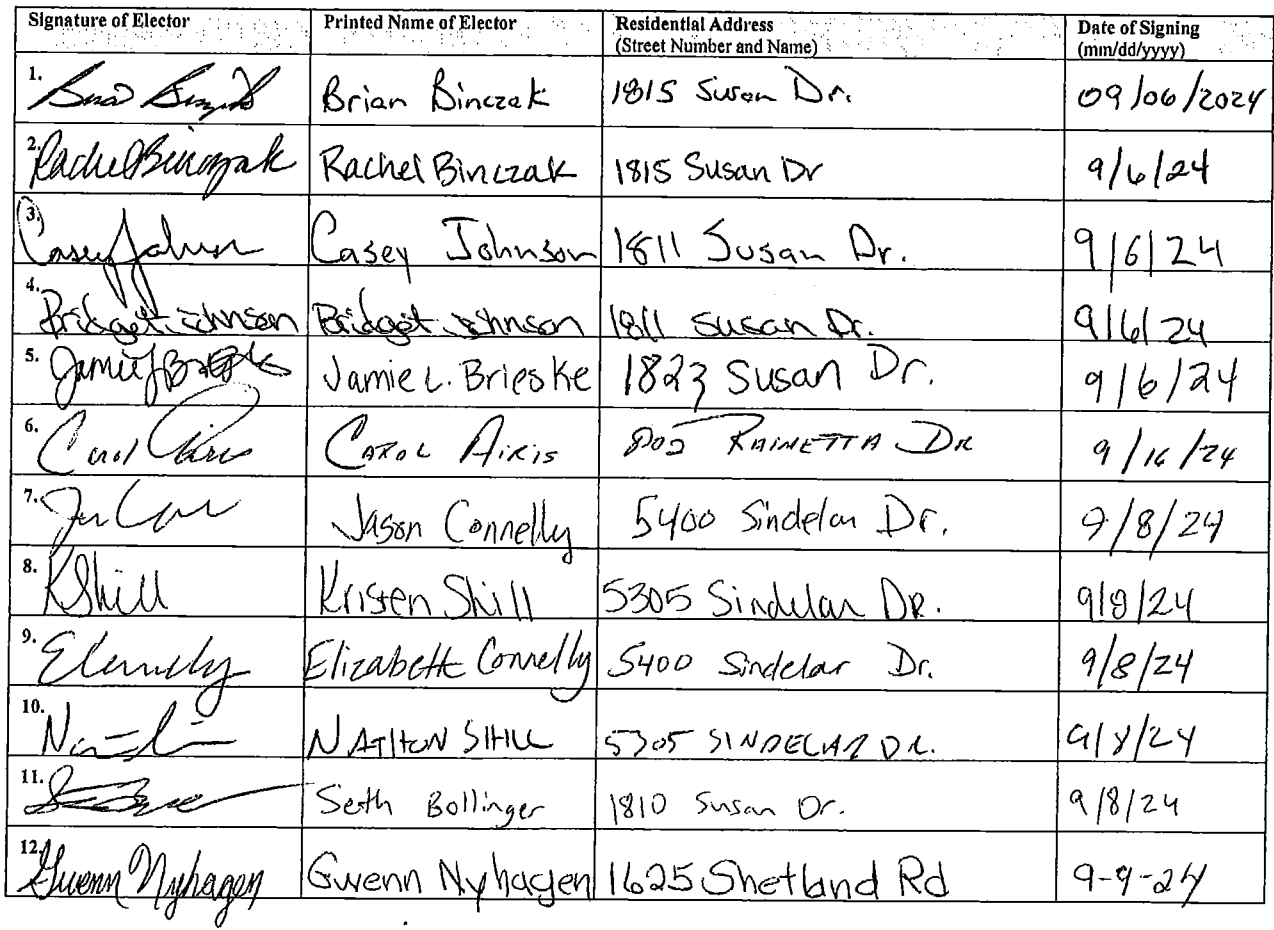 Signature of Elector Printed Name of Elector Residential Address Date of Signing
(Street Number and Name) (mm/dd/yyyy)
1. Brian Binczak 1815 Susan Dr. 09/06/2024
2. Rachel Binczak Rachel Binczak 1815 Susan Dr 9/6/24
3. Casey Johnson Casey Johnson 1811 Susan Dr. 9/6/24
4. Bridget Johnson Bridget Johnson 1811 Susan Dr. 9/6/24
5. Jamie L. Brieske 1823 Susan Dr. 9/6/24
6. Carol Airis CAROL AIRIS 802 RAINETTA DR 9/16/24
7. Jason Connelly 5400 Sindelar Dr. 9/8/24
8. KShill Kristen Shill 5305 Sindelar DR. 9/8/24
9. EConnelly Elizabeth Connelly 5400 Sindelar Dr. 9/8/24
10. NATHON SHILL 5305 SINDELAR DR. 9/8/24
11. Seth Bollinger 1810 Susan Dr. 9/8/24
12. Gwenn Nyhagen Gwenn Nyhagen 1625 Shetland Rd 9-9-24